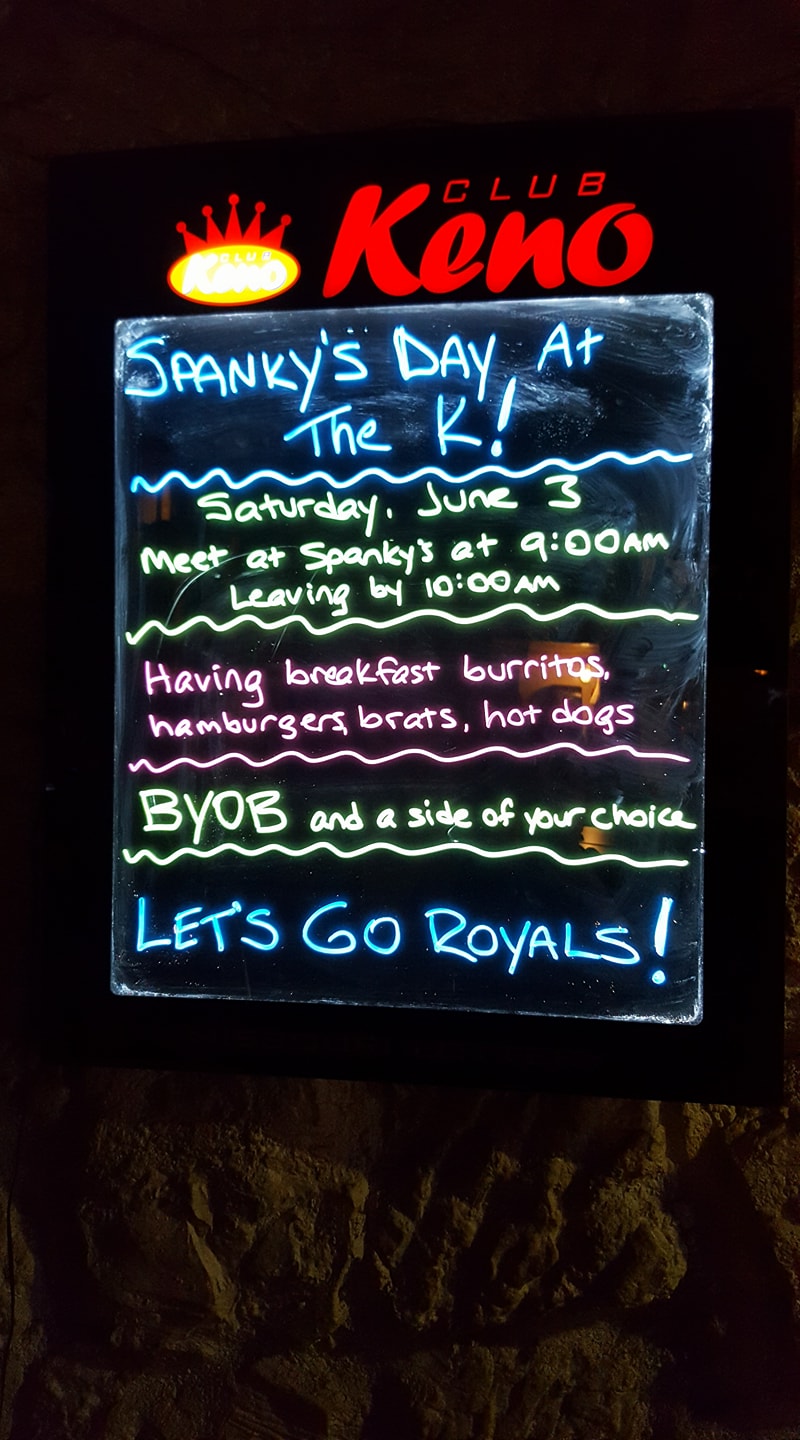 CLUB
Keno
CLUB
Keno
SPANKY'S DAY At
The K!
Saturday, June 3
Meet at Spanky's at 9:00AM
Leaving by 10:00AM
Having breakfast burritos,
hamburgers, brats, hot dogs
BYOB and a side of your choice
LET'S GO ROYALS!